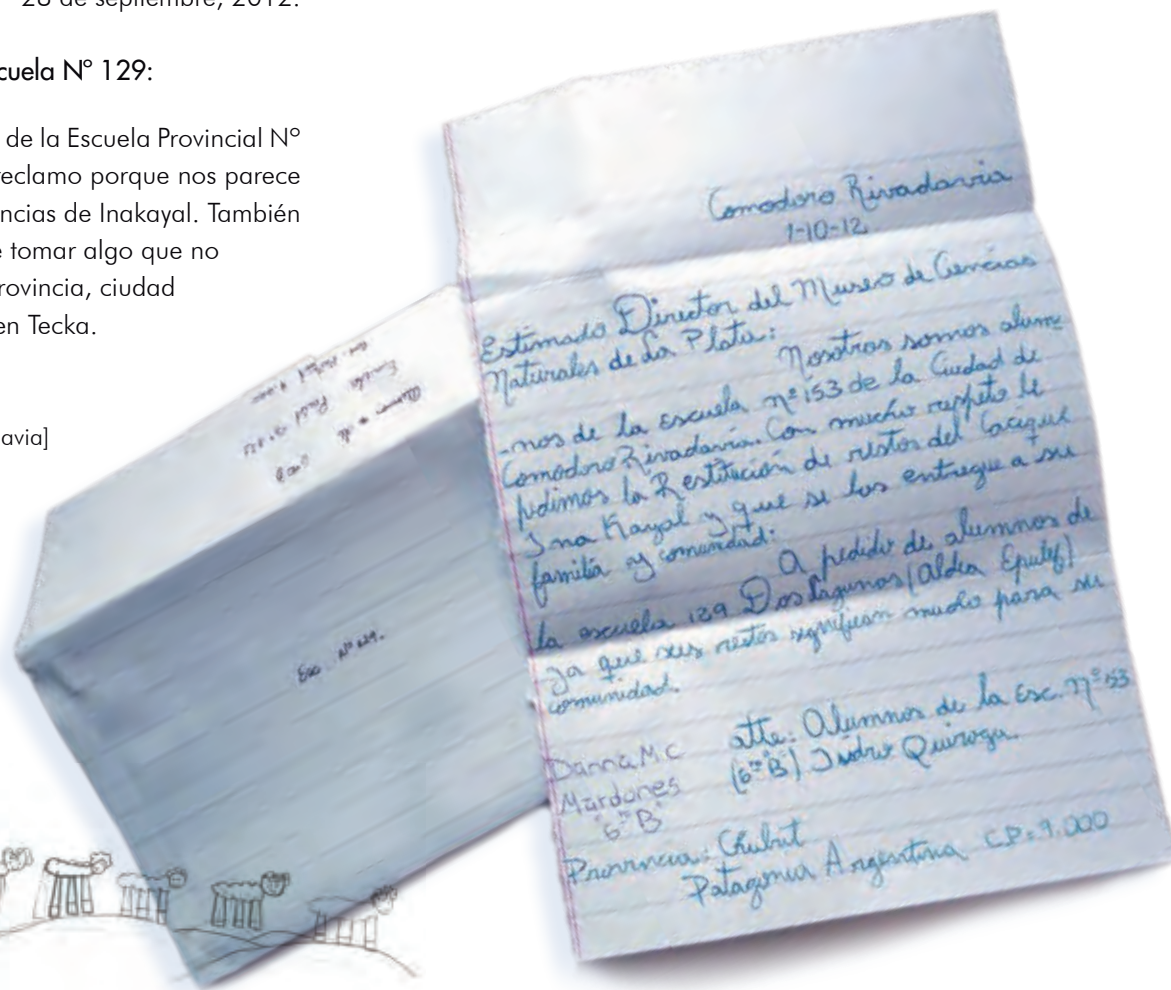 28 de septiembre, 2012.
cuela Nº 129:
de la Escuela Provincial Nº
reclamo porque nos parece
ncias de Inakayal. También
e tomar algo que no
rovincia, ciudad
en Tecka.
avia]
Comodoro Rivadavia
1-10-12
Estimado Director del Museo de Ciencias
Naturales de La Plata:
Nosotros somos alum=
-nos de la escuela nº 153 de la Ciudad de
Comodoro Rivadavia. Con mucho respeto le
pedimos la Restitución de restos del Cacique
Ina Kayal y que se los entregue a su
familia y comunidad.
A pedido de alumnos de
la escuela 129 Dos Lagunas (Aldea Epulef)
ya que sus restos significan mucho para su
comunidad.
atte: Alumnos de la Esc. nº 153
(6to B) Isidro Quiroga.
Danna M C
Mardones
6to B
Provincia: Chubut
Patagonia Argentina CP: 9.000
Esc. Nº 129.